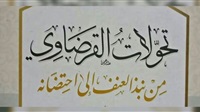 تحولات القرضاوي
من نبذ العنف إلى احتضانه